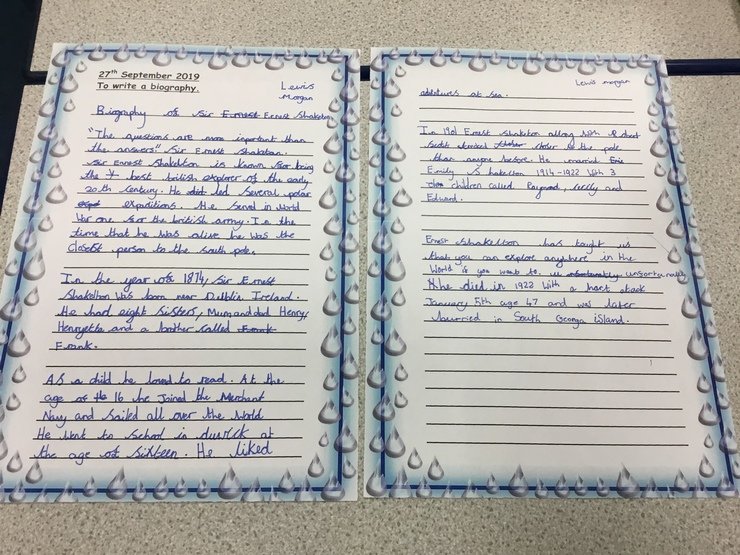 27th September 2019
To write a biography.
Lewis
Morgan
Biography of Sir Ernest Ernest Shakelton
"The questions are more important than
the answers" Sir Ernest Shakelton.
Sir Ernest Shakelton is known for being
the best british explorer of the early
20th Century. He did led several polar
expeditions. He served in World
War one for the british army. In the
time that he was alive he was the
closest person to the south pole.
In the year of 1874, Sir Ernest
Shakelton was born near Dublin Ireland.
He had eight sisters, Mum and dad Henry,
Henryetta and a brother called Frank
Frank.
As a child he loved to read. At the
age of 16 he Joined the Merchant
Navy and sailed all over the World
He went to School in at
the age of sixteen. He liked
Lewis morgan
at sea.
In 1901 Ernest shakelton along with
closer to the pole
than anyone before. He married
Emily Shakelton 1914-1922 With 3
children called Raymond, and
Edward.
Ernest shakelton has taught us
that you can explore anywhere in the
World if you want to.
he died in 1922 With a
January 5th age 47 and was later
in South Georga island.